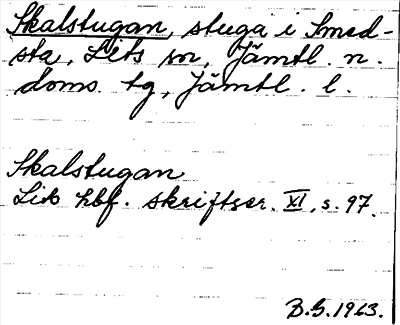 Skalstugan, stuga i Smed-
sta, Lits sn, Jämtl. n.
doms. tg, Jämtl. l.
Skalstugan
Lits hbf. skriftser. XI, s. 97.
B.G. 1963.